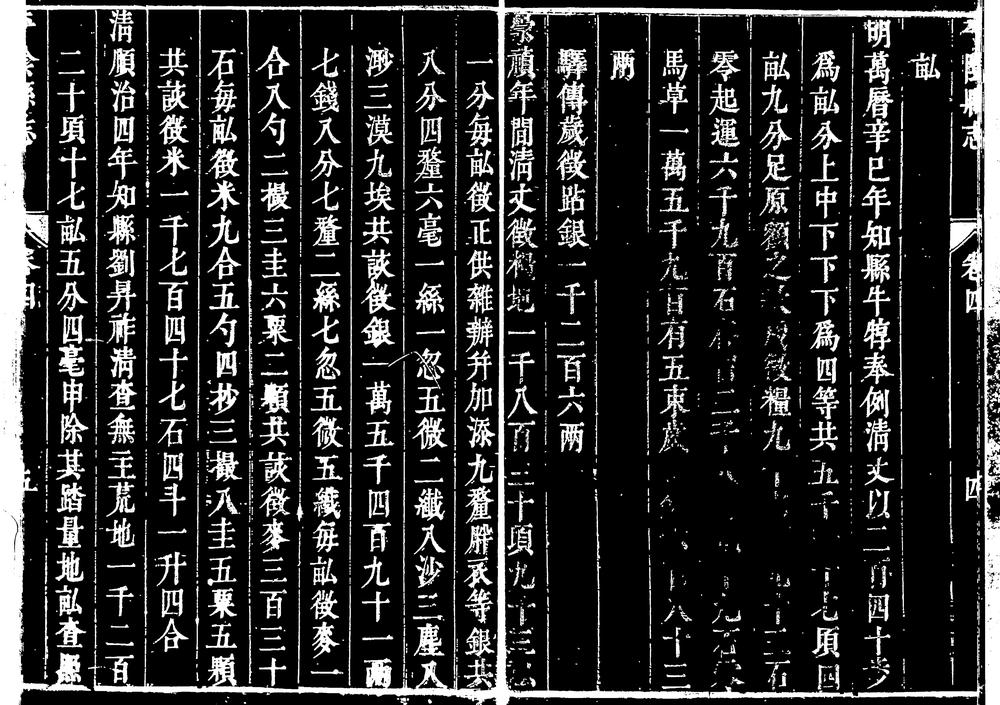 陰縣志
卷四
四
畝
明萬曆辛巳年知縣牛犉奉例清丈以二百四十步
爲畝分上中下下下爲四等共五千七項四
畝九分足原額之歲徵糧九十二石
零起運六千九百石二千九石
馬草一萬五千九百有五束歲八十三
兩
驛傳歲徵站銀一千二百六兩
崇禎年間清丈徵糧地一千八百三十項九十三畝
一分每畝徵正供雜辦幷加添九釐胖衣等銀共
八分四釐六毫一絲一忽五微二纖八沙三塵八
渺三漠九埃共該徵銀一萬五千四百九十一兩
七錢八分七釐二絲七忽五微五纖每畝徵麥一
合八勺二撮三圭六粟二顆共該徵麥三百三十
石每畝徵米九合五勺四抄三撮八圭五粟五顆
共該徵米一千七百四十七石四斗一升四合
清順治四年知縣劉昇祚清查無主荒地一千二百
二十頃十七畝五分四毫申除其踏量地畝查照
陰縣志
卷四
五